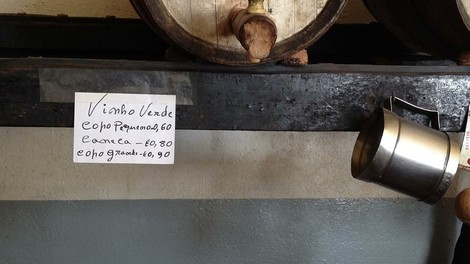 Vinho Verde
Copo Pequeno 0,60
Caneca - €0,80
Copo grande - €0,90